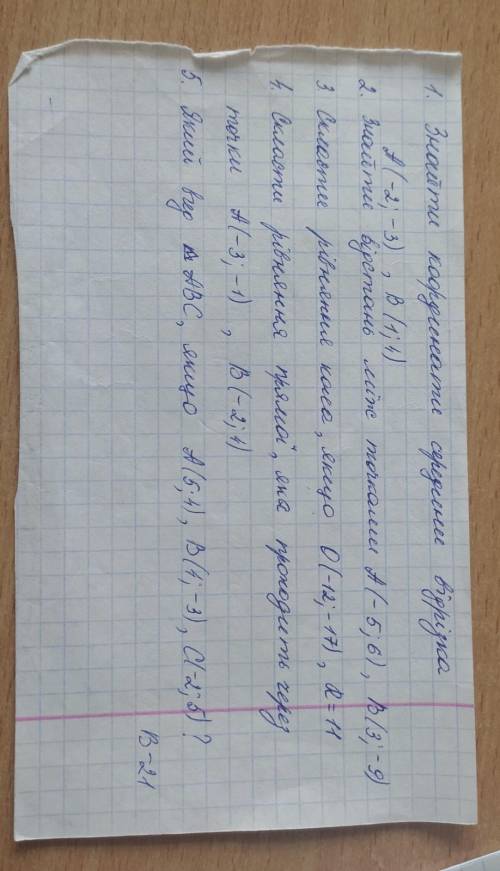 1. Знайти координати середини відрізка
A(-2; -3), B(1; 4)
2. Знайти відстань між точками A(-5; 6), B(3; -9)
3 Скласти рівняння кола, якщо O(-12; -17), R = 11
4. Скласти рівняння прямої, яка проходить через
точки A(-3; -1), B(-2; 4)
5. Який вид △ABC, якщо A(5; 4), B(4; -3), C(-2; 5)?
B-21